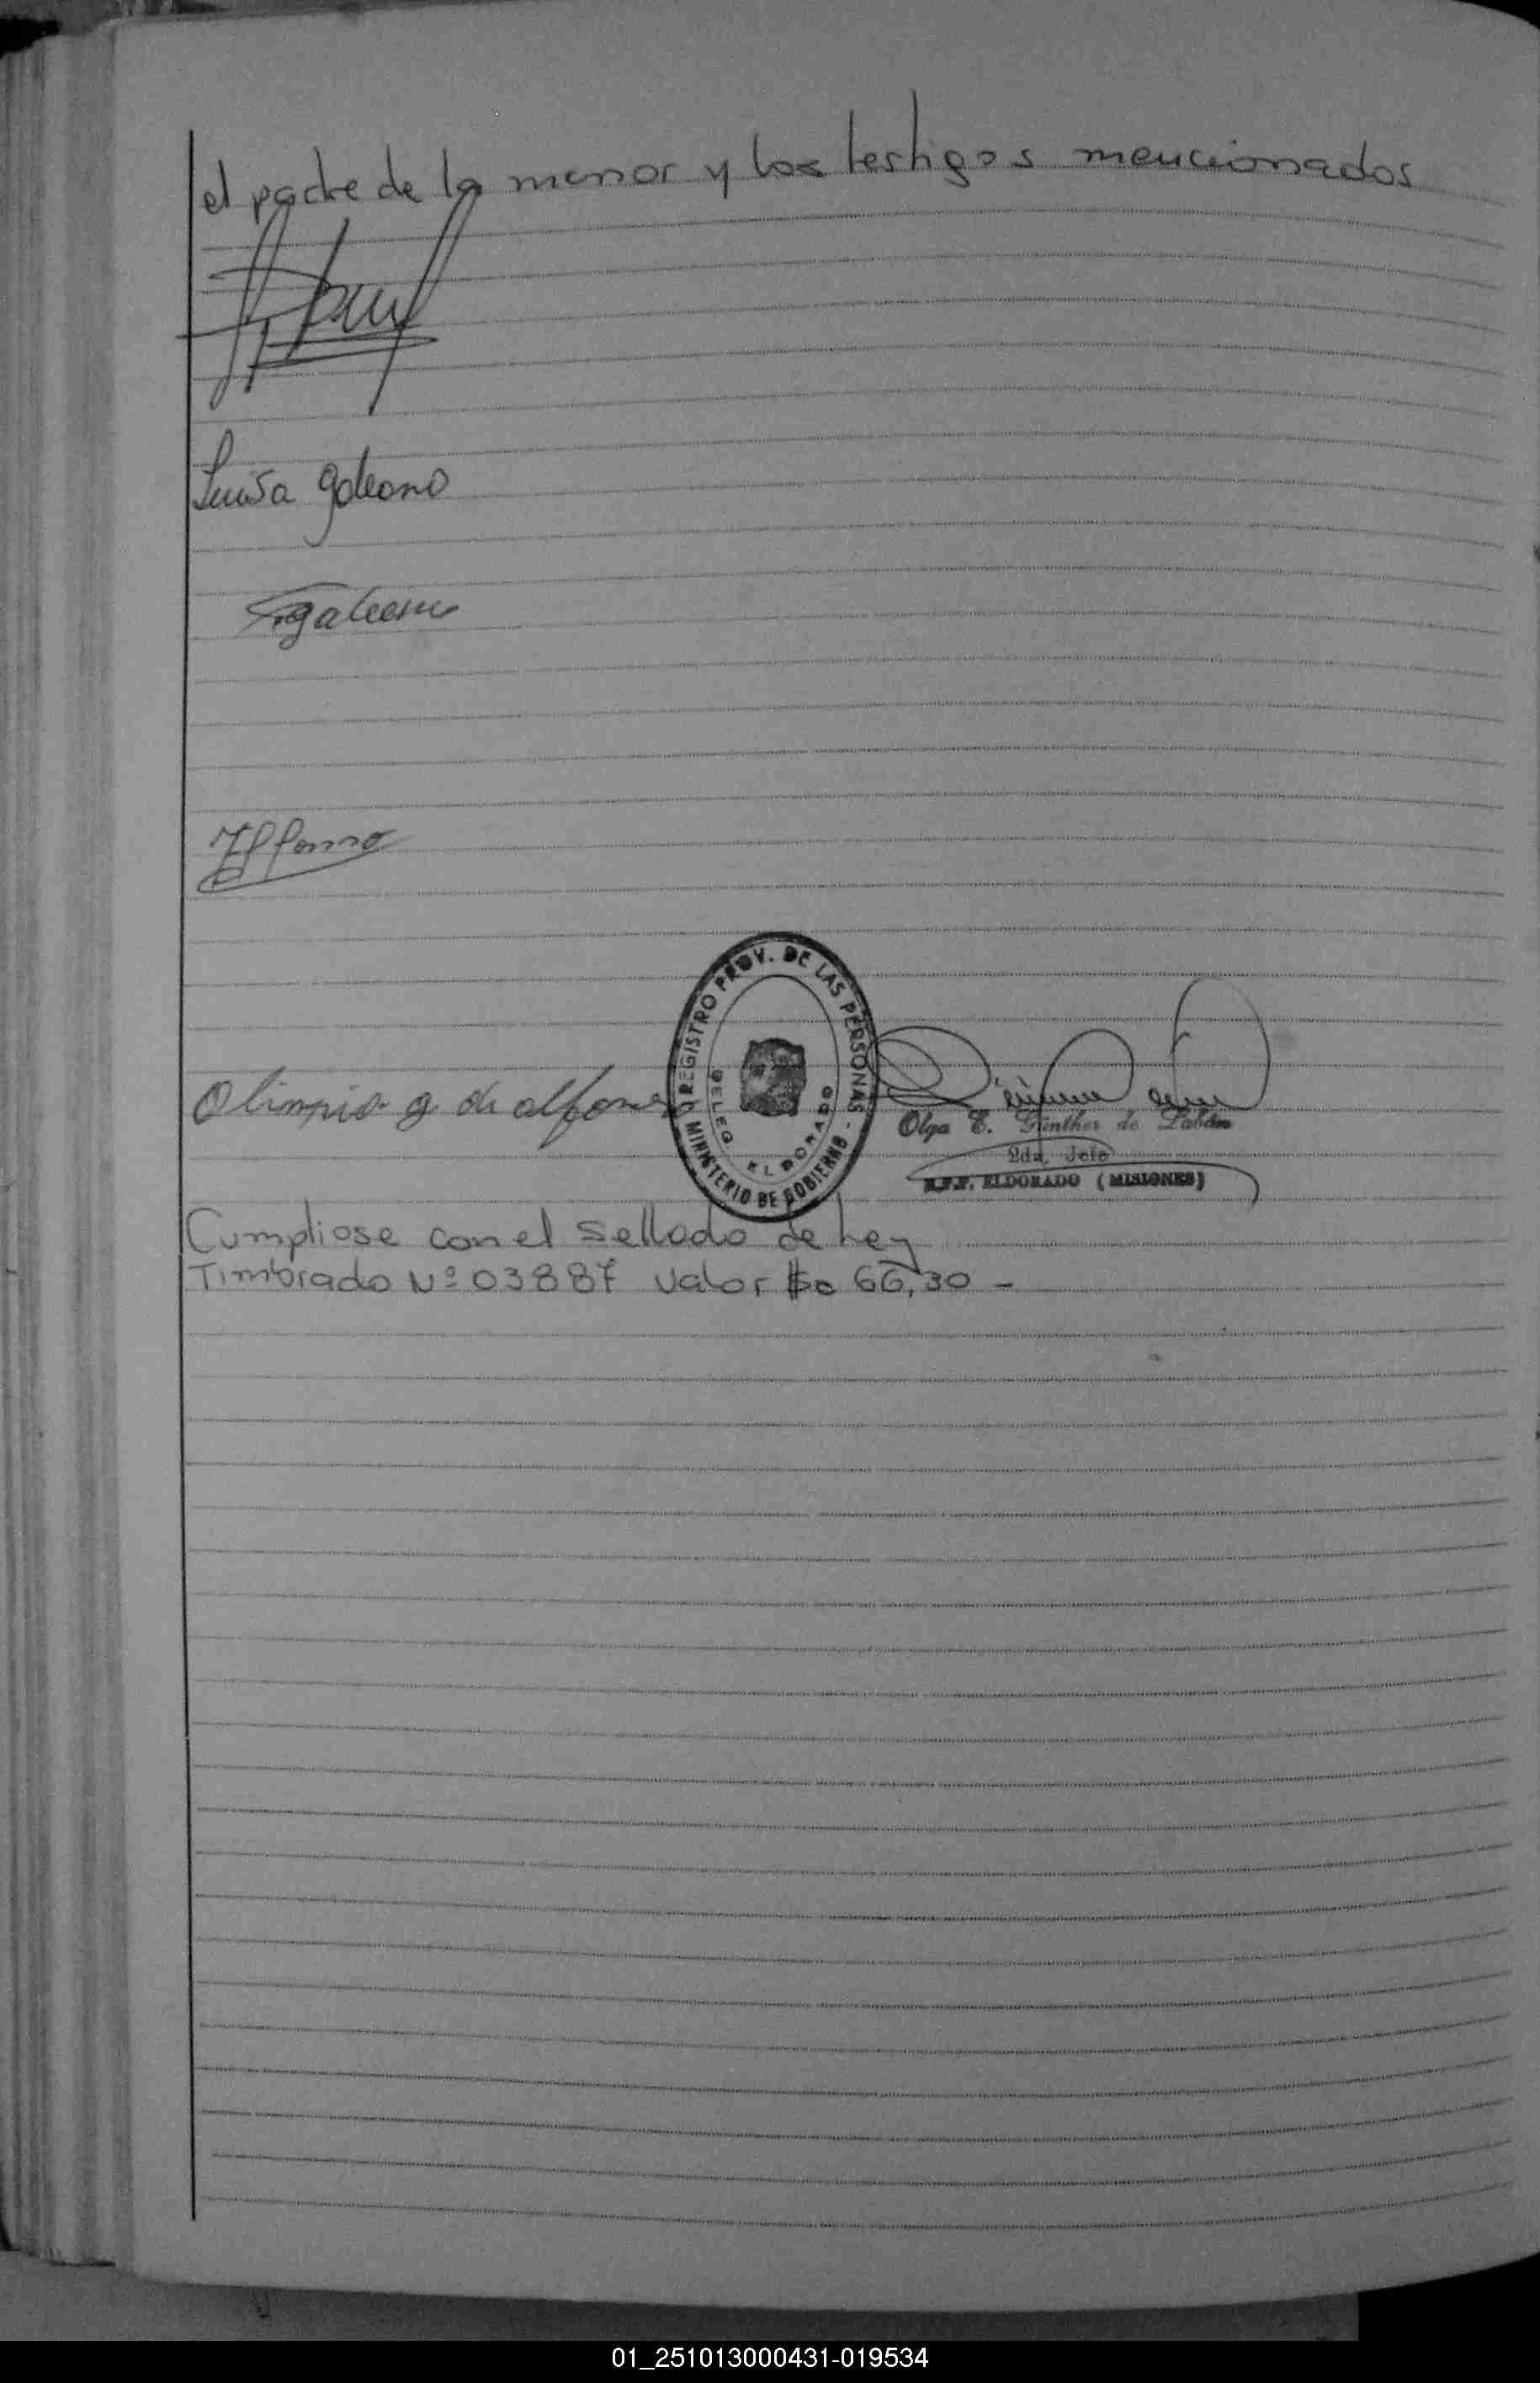 el padre de la menor y los testigos mencionados
Luisa galeano
galeano
Olimpia g de alfonso
REGISTRO PROV. DE LAS PERSONAS - MINISTERIO DE GOBIERNO
DELEG. ELDORADO
Olga E. Günther de
2da. Jefe
ELDORADO (MISIONES)
Cumpliose con el sellado de Ley
Timbrado Nº 03887 valor $a 66,30 -
01_251013000431-019534